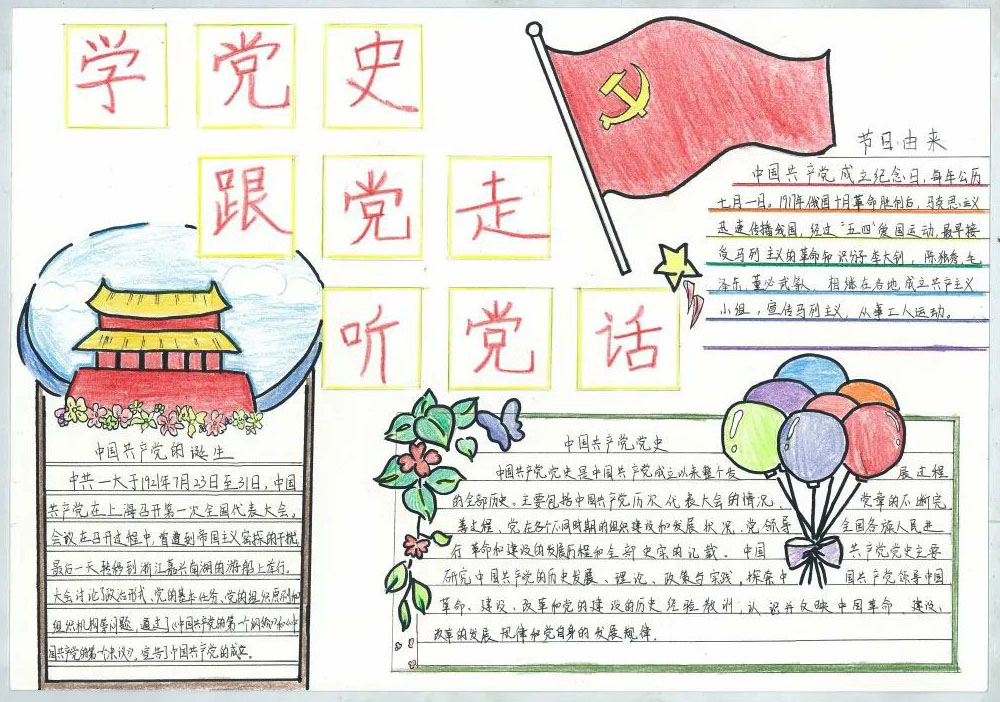 学党史
跟党走
听党话
节日由来
中国共产党成立纪念日,每年公历
七月一日。1917年俄国十月革命胜利后,马克思主义
迅速传播我国,经过“五四”爱国运动,最早接
受马列主义的革命知识分子李大钊,陈独秀,毛
泽东,董必武等,相继在各地成立共产主义
小组,宣传马列主义,从事工人运动。
中国共产党的诞生
中共一大于1921年7月23日至31日,中国
共产党在上海召开第一次全国代表大会。
会议在召开过程中,曾遭到帝国主义密探的干扰,
最后一天转移到浙江嘉兴南湖的游船上举行。
大会讨论了政治形式、党的基本任务、党的组织原则和
组织机构等问题,通过了《中国共产党的第一个纲领》和《中
国共产党的第一个决议》,宣告了中国共产党的成立。
中国共产党党史
中国共产党党史是中国共产党成立以来整个发展过程
的全部历史。主要包括中国共产党历次代表大会的情况、党章的不断完
善过程、党在各个不同时期的组织建设和发展状况、党领导全国各族人民进
行革命和建设的发展历程和全部史实的记载。中国共产党党史主要
研究中国共产党的历史发展、理论、政策与实践,探索中国共产党领导中国
革命、建设、改革和党的建设的历史经验教训,认识并反映中国革命、建设、
改革的发展规律和党自身的发展规律.